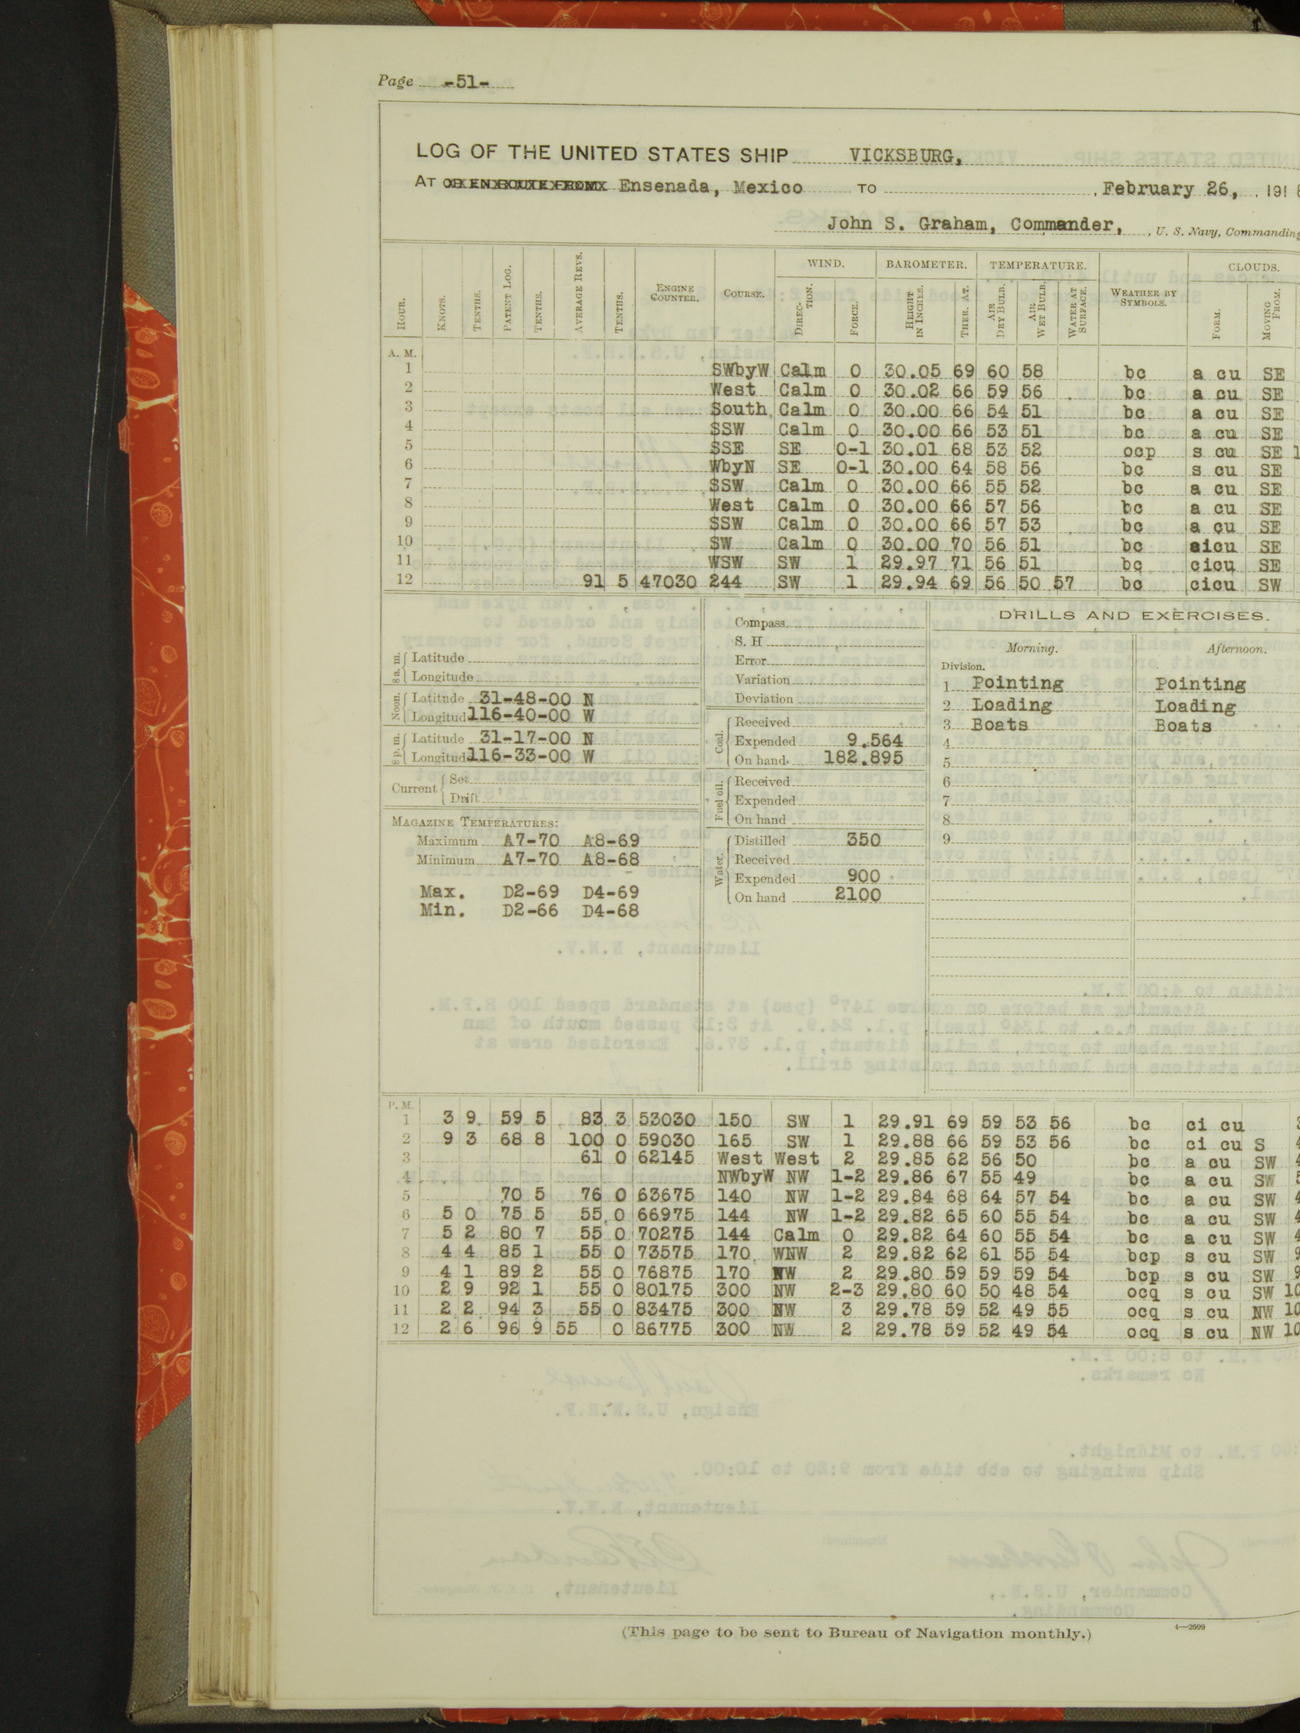 Page -51-
LOG OF THE UNITED STATES SHIP VICKSBURG,
AT OR EN ROUTE FROM Ensenada, Mexico TO , February 26, , 191
John S. Graham, Commander, , U. S. Navy, Commanding
WIND. BAROMETER. TEMPERATURE. CLOUDS.
HOUR. KNOTS. TENTHS. PATENT LOG. TENTHS. AVERAGE REVS. TENTHS. ENGINE COUNTER. COURSE. DIREC- TION. FORCE. HEIGHT IN INCHES. THER. AT. AIR DRY BULB. AIR WET BULB. WATER AT SURFACE. WEATHER BY SYMBOLS. FORM. MOVING FROM.
A. M.
1 SWbyW Calm 0 30.05 69 60 58 bc a cu SE
2 West Calm 0 30.02 66 59 56 bc a cu SE
3 South Calm 0 30.00 66 54 51 bc a cu SE
4 SSW Calm 0 30.00 66 53 51 bc a cu SE
5 SSE SE 0-1 30.01 68 53 52 ocp s cu SE 1
6 WbyN SE 0-1 30.00 64 58 56 bc s cu SE
7 SSW Calm 0 30.00 66 55 52 bc a cu SE
8 West Calm 0 30.00 66 57 56 bc a cu SE
9 SSW Calm 0 30.00 66 57 53 bc a cu SE
10 SW Calm 0 30.00 70 56 51 bc aicu SE
11 WSW SW 1 29.97 71 56 51 bc cicu SE
12 91 5 47030 244 SW 1 29.94 69 56 50 57 bc cicu SW
8 a.m. Latitude
Longitude
Noon. Latitude 31-48-00 N
Longitud116-40-00 W
8 p.m. Latitude 31-17-00 N
Longitud116-33-00 W
Current Set
Drift
MAGAZINE TEMPERATURES:
Maximum A7-70 A8-69
Minimum A7-70 A8-68
Max. D2-69 D4-69
Min. D2-66 D4-68
Compass
S. H
Error
Variation
Deviation
Coal. Received
Expended 9.564
On hand 182.895
Fuel oil. Received
Expended
On hand
Water. Distilled 350
Received
Expended 900
On hand 2100
DRILLS AND EXERCISES.
Morning. Afternoon.
Division.
1 Pointing Pointing
2 Loading Loading
3 Boats Boats
4
5
6
7
8
9
P. M.
1 3 9 59 5 83 3 53030 150 SW 1 29.91 69 59 53 56 bc ci cu 3
2 9 3 68 8 100 0 59030 165 SW 1 29.88 66 59 53 56 bc ci cu S 4
3 61 0 62145 West West 2 29.85 62 56 50 bc a cu SW 4
4 NWbyW NW 1-2 29.86 67 55 49 bc a cu SW 5
5 70 5 76 0 63675 140 NW 1-2 29.84 68 64 57 54 bc a cu SW 4
6 5 0 75 5 55 0 66975 144 NW 1-2 29.82 65 60 55 54 bc a cu SW 4
7 5 2 80 7 55 0 70275 144 Calm 0 29.82 64 60 55 54 bc a cu SW 4
8 4 4 85 1 55 0 73575 170 WNW 2 29.82 62 61 55 54 bcp s cu SW 9
9 4 1 89 2 55 0 76875 170 NW 2 29.80 59 59 59 54 bcp s cu SW 9
10 2 9 92 1 55 0 80175 300 NW 2-3 29.80 60 50 48 54 ocq s cu SW 10
11 2 2 94 3 55 0 83475 300 NW 3 29.78 59 52 49 55 ocq s cu NW 10
12 2 6 96 9 55 0 86775 300 NW 2 29.78 59 52 49 54 ocq s cu NW 10
(This page to be sent to Bureau of Navigation monthly.)
4—2699